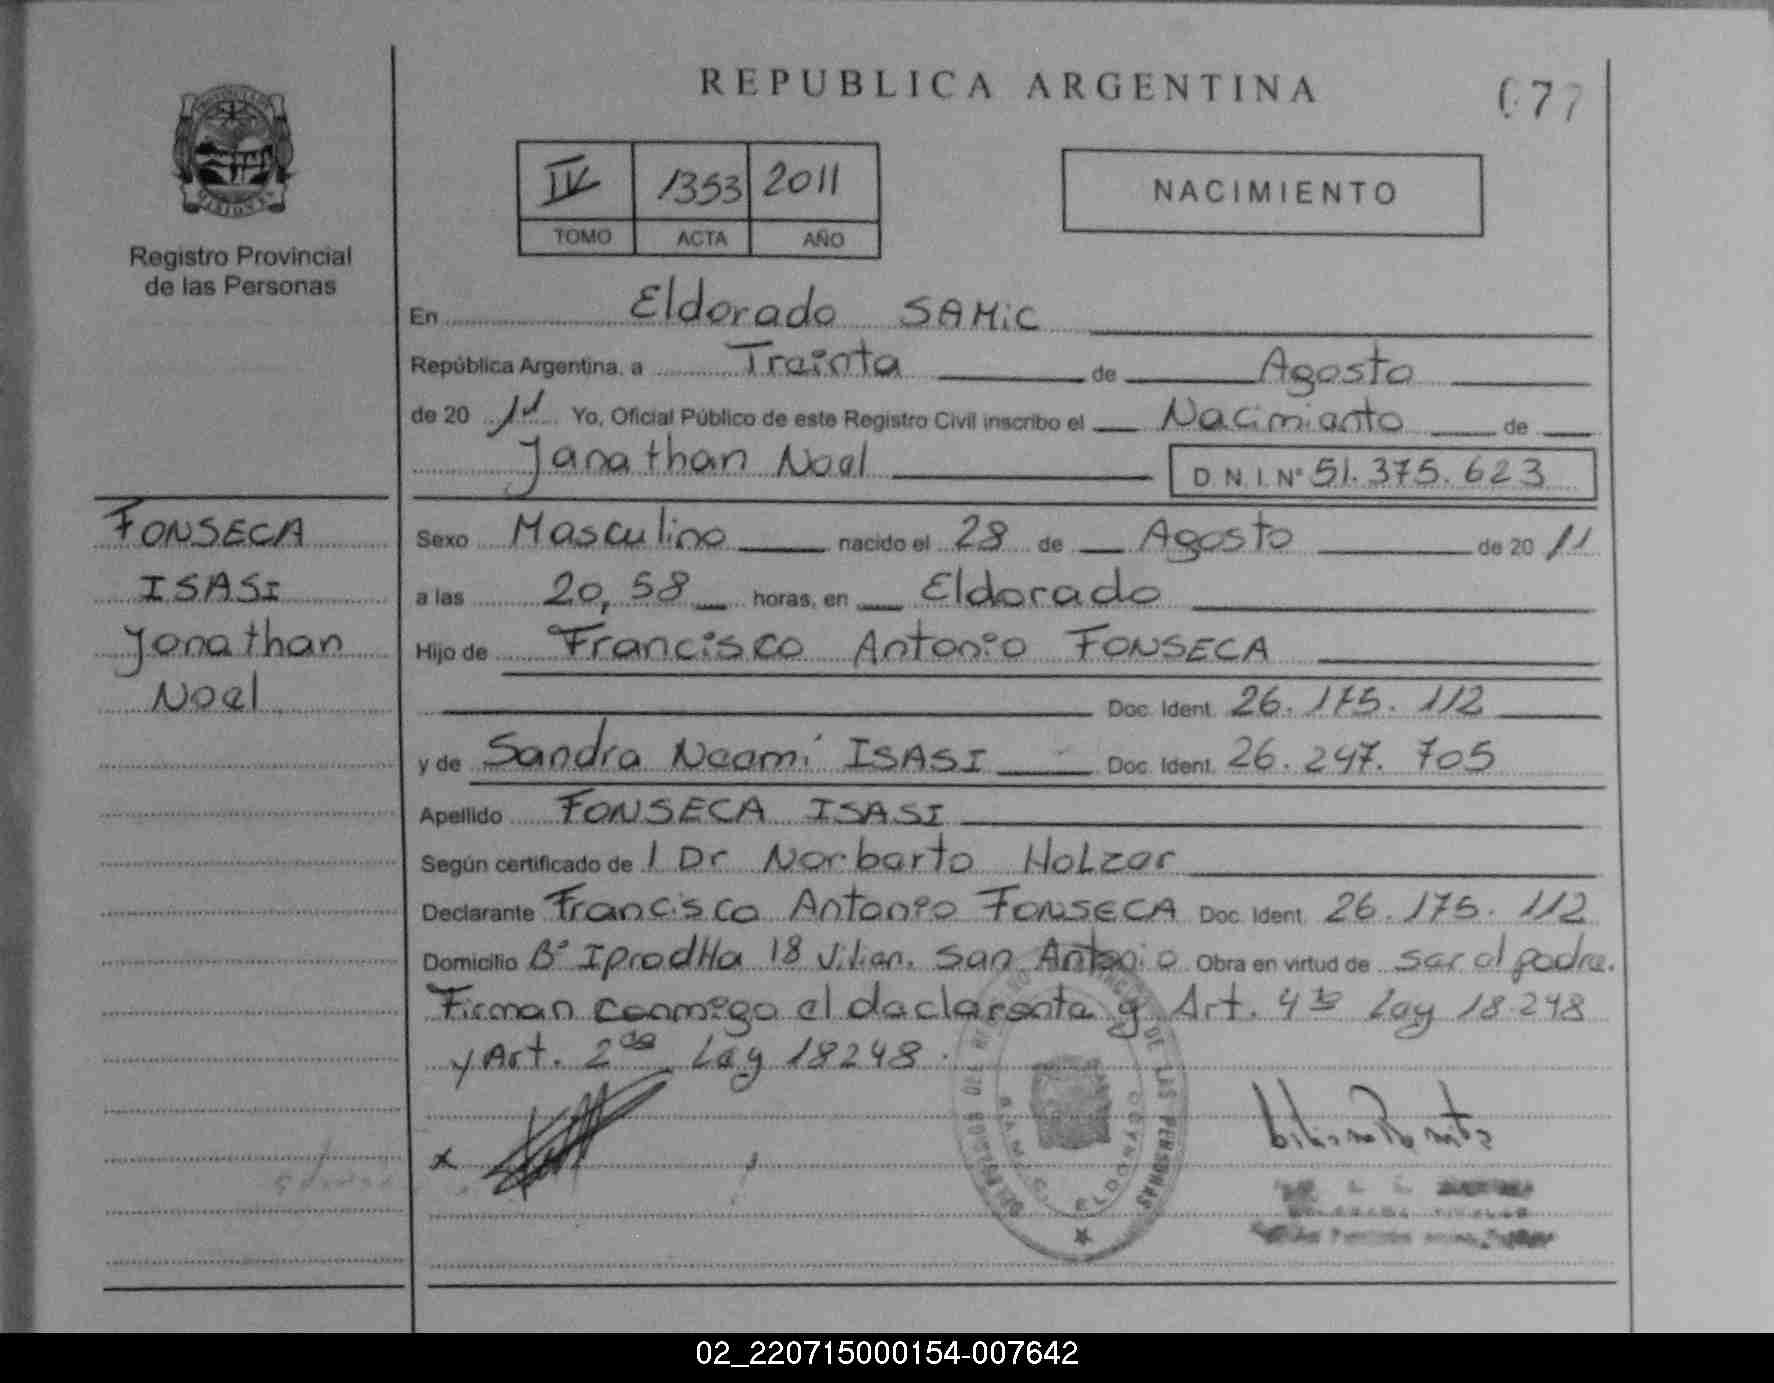 REPUBLICA ARGENTINA
077
IV 1353 2011
TOMO ACTA AÑO
NACIMIENTO
Registro Provincial
de las Personas
En Eldorado SAMiC
República Argentina, a Treinta de Agosto
de 20 11 Yo, Oficial Público de este Registro Civil inscribo el Nacimiento de
Jonathan Noel D.N.I.Nº 51.375.623
FONSECA
ISASI
Jonathan
Noel
Sexo Masculino nacido el 28 de Agosto de 20 11
a las 20,58 horas, en Eldorado
Hijo de Francisco Antonio FONSECA
Doc. Ident. 26.175.112
y de Sandra Noemí ISASI Doc. Ident. 26.247.705
Apellido FONSECA ISASI
Según certificado de l Dr Norberto HOLZer
Declarante Francisco Antonio FONSECA Doc. Ident. 26.175.112
Domicilio Bº IprodHa 18 Vivien. San Antonio Obra en virtud de ser el padre.
Firman conmigo el declarente y Art. 4to Ley 18.248
y Art. 2do Ley 18248.
x
DEL REGISTRO DE LAS PERSONAS
S.A.M.I.C. ELDORADO
02_220715000154-007642